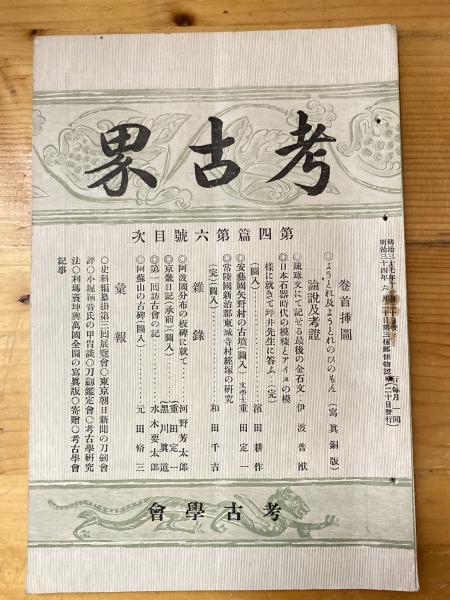 考古界
第四篇第六號目次
明治三十四年六月二十日第三種郵便物認可
每月一回
二十日發行
卷首挿圖
◎ようとれ及ようとれのひのもん(寫眞銅版)
論說及考證
◎琉球文にて記せる最後の金石文・伊波普猷
◎日本石器時代の模樣とアイヌの模
樣に就きて坪井先生に答ふ(完)
(圖入)……濱田耕作
◎安藝國矢野村の古墳(圖入)文學士重田定一
◎常陸國新治郡東城寺村經塚の研究
(完)(圖入)……和田千吉
雜錄
◎阿波國分布の板碑に就て……河野芳太郎
◎京畿日記(承前)(圖入)……重田定一
黑川眞道
◎第一回訪古會の記……水木要太郎
◎阿蘇山の古碑(圖入)……元田脩三
彙報
○史料編纂掛第三回展覽會○東京朝日新聞の刀劔會
評○小堀鞆音氏の甲冑談○刀劔鑑定會○考古學研究
法○利瑪竇坤輿萬國全圖の寫眞版○寄贈○考古學會
記事
考古學會